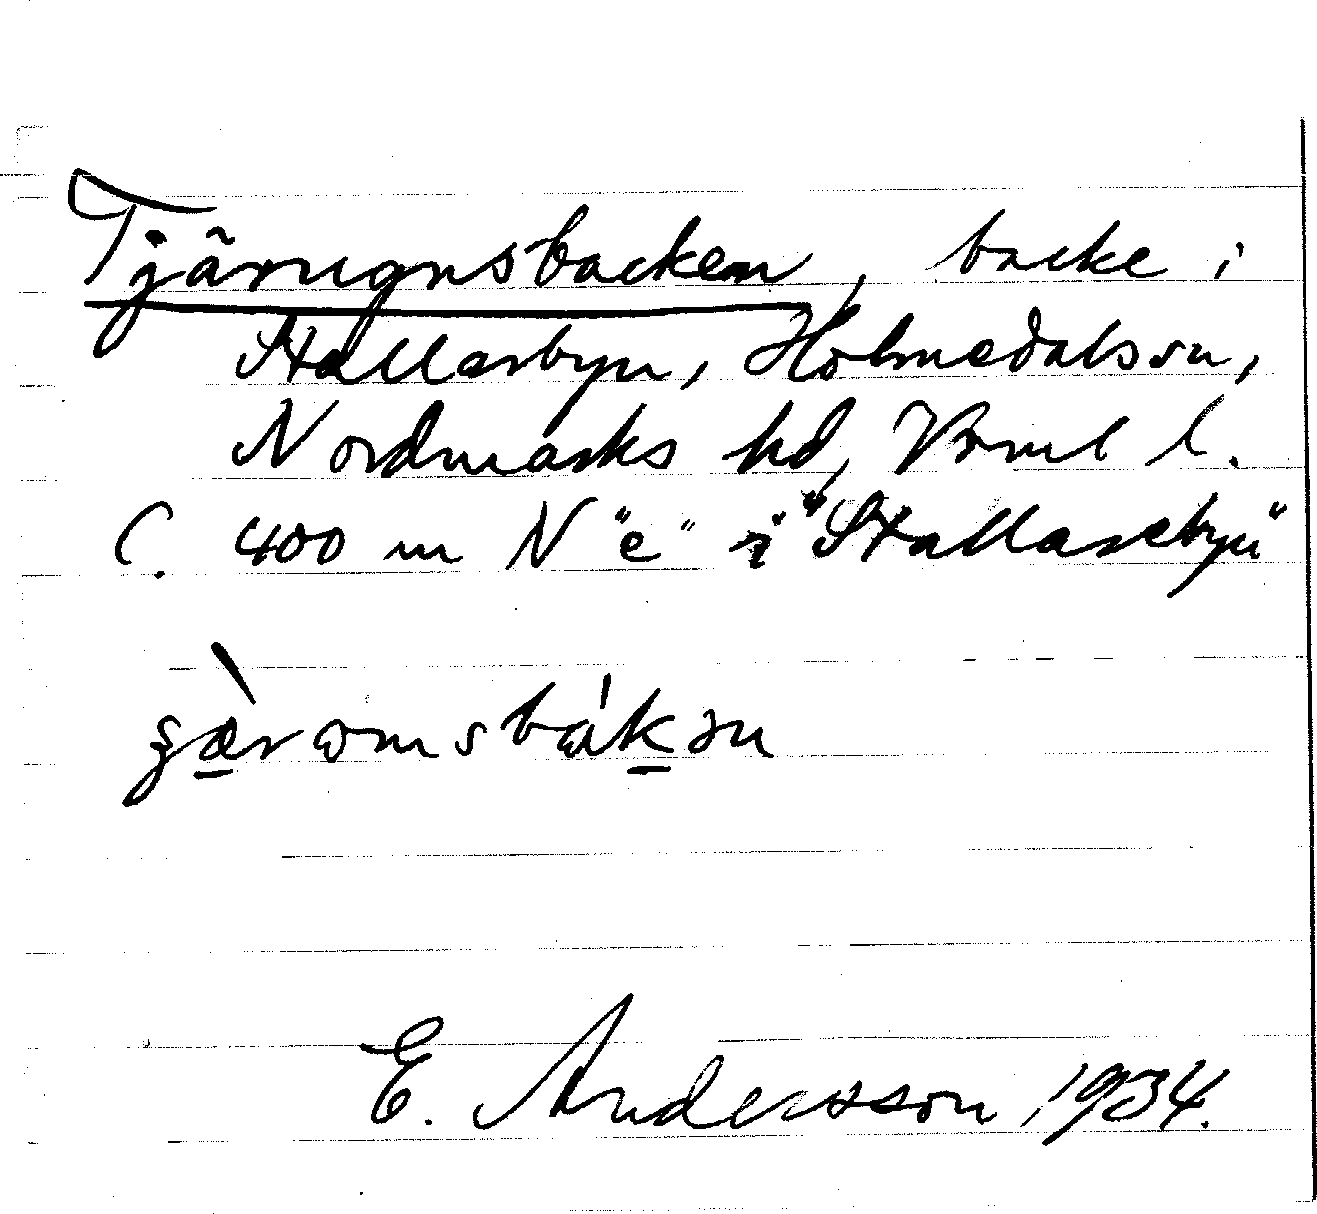 Tjärugnsbacken, backe i
Stallarbyn, Holmedals sn,
Nordmarks hd, Vrml l.
C. 400 m N "e" i "Stallarebyn"
E. Andersson 1934.